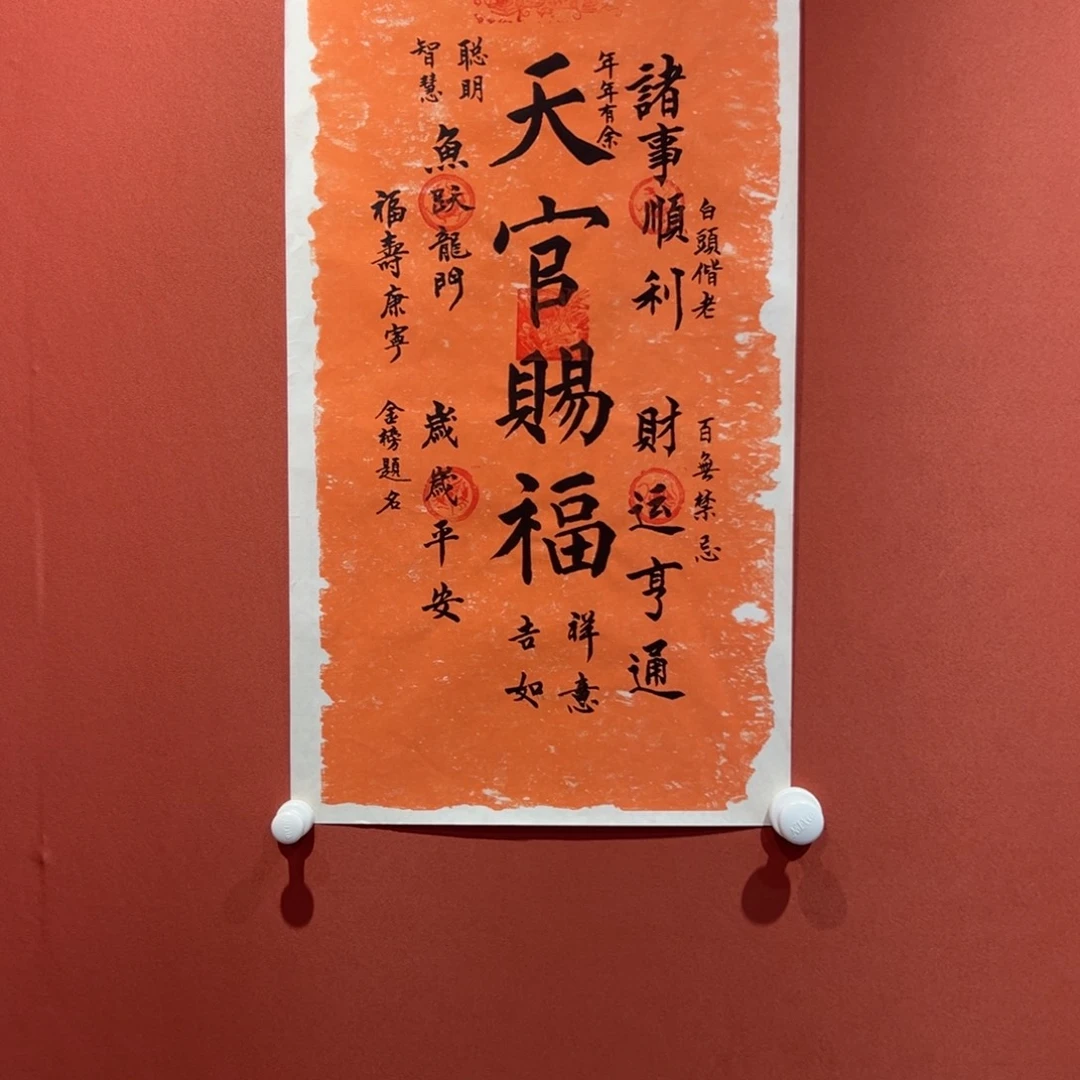 白頭偕老
百無禁忌
諸事順利
財运亨通
年年有余
天官賜福
祥意
吉如
聪明
智慧
魚跃龍門
歲歲平安
福壽康寧
金榜題名